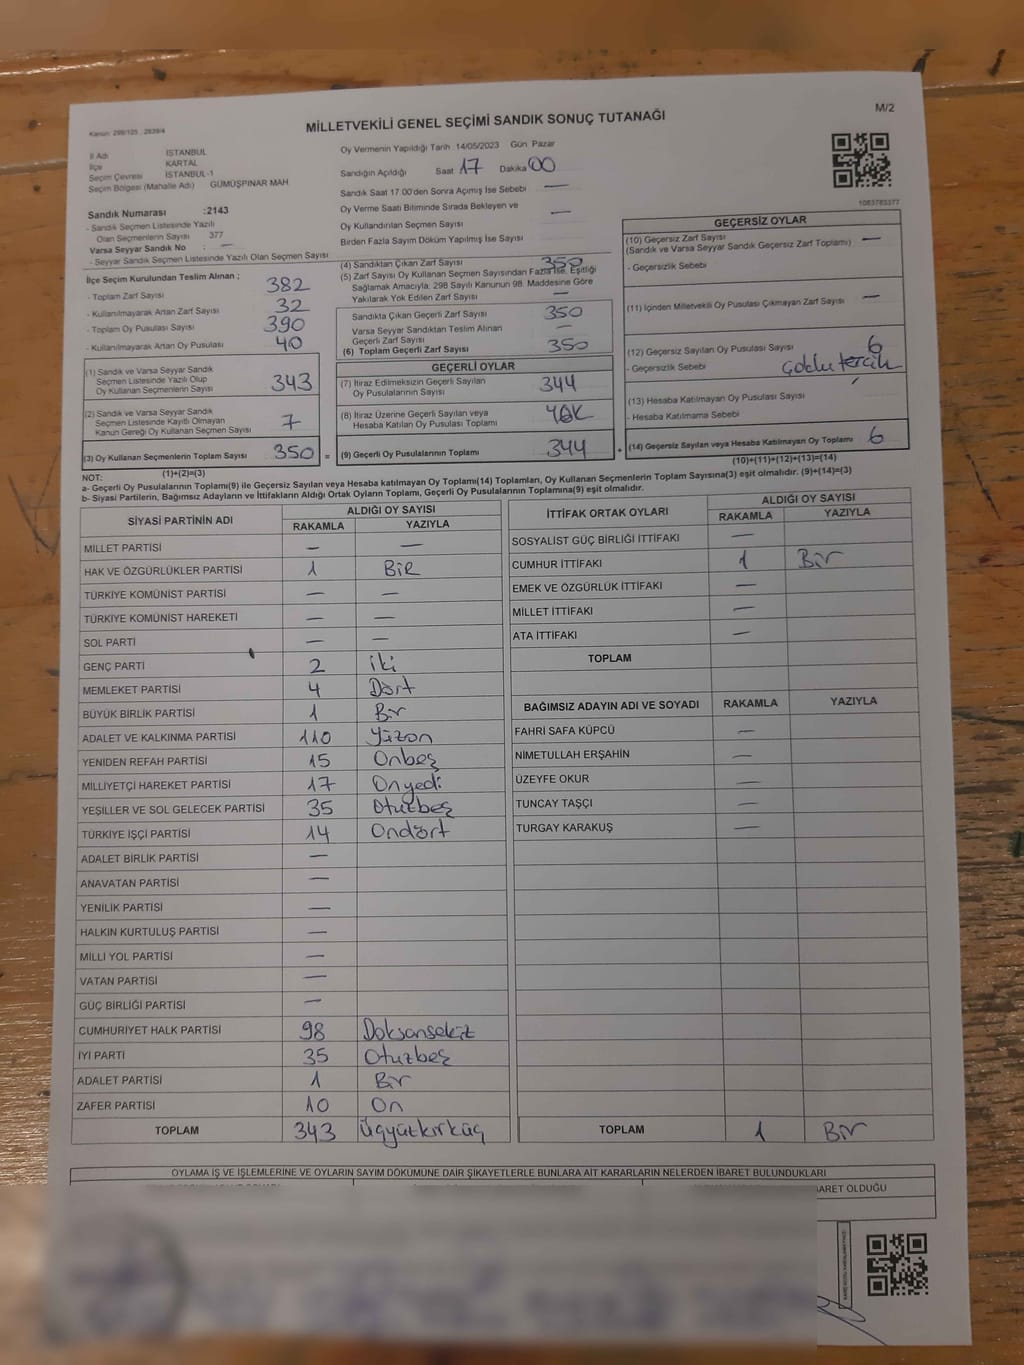 M/2
Kanun: 298/105 , 2839/4
MİLLETVEKİLİ GENEL SEÇİMİ SANDIK SONUÇ TUTANAĞI
İl Adı İSTANBUL
İlçe KARTAL
Seçim Çevresi İSTANBUL-1
Seçim Bölgesi (Mahalle Adı) GÜMÜŞPINAR MAH
Sandık Numarası :2143
- Sandık Seçmen Listesinde Yazılı
Olan Seçmenlerin Sayısı 377
Varsa Seyyar Sandık No : —
- Seyyar Sandık Seçmen Listesinde Yazılı Olan Seçmen Sayısı
Oy Vermenin Yapıldığı Tarih :14/05/2023 Gün Pazar
Sandığın Açıldığı Saat 17 Dakika 00
Sandık Saat 17.00'den Sonra Açımış İse Sebebi —
Oy Verme Saati Bitiminde Sırada Bekleyen ve
Oy Kullandırılan Seçmen Sayısı —
Birden Fazla Sayım Döküm Yapılmış İse Sayısı
1083783377
İlçe Seçim Kurulundan Teslim Alınan ;
- Toplam Zarf Sayısı 382
- Kullanılmayarak Artan Zarf Sayısı 32
- Toplam Oy Pusulası Sayısı 390
- Kullanılmayarak Artan Oy Pusulası 40
(1) Sandık ve Varsa Seyyar Sandık
Seçmen Listesinde Yazılı Olup
Oy Kullanan Seçmenlerin Sayısı 343
(2) Sandık ve Varsa Seyyar Sandık
Seçmen Listesinde Kayıtlı Olmayan
Kanun Gereği Oy Kullanan Seçmen Sayısı 7
(3) Oy Kullanan Seçmenlerin Toplam Sayısı 350 =
(1)+(2)=(3)
(4) Sandıktan Çıkan Zarf Sayısı 350
(5) Zarf Sayısı Oy Kullanan Seçmen Sayısından Fazla İse, Eşitliği
Sağlamak Amacıyla; 298 Sayılı Kanunun 98. Maddesine Göre
Yakılarak Yok Edilen Zarf Sayısı —
Sandıkta Çıkan Geçerli Zarf Sayısı 350
Varsa Seyyar Sandıktan Teslim Alınan
Geçerli Zarf Sayısı —
(6) Toplam Geçerli Zarf Sayısı 350
GEÇERLİ OYLAR
(7) İtiraz Edilmeksizin Geçerli Sayılan
Oy Pusulalarının Sayısı 344
(8) İtiraz Üzerine Geçerli Sayılan veya
Hesaba Katılan Oy Pusulası Toplamı YOK
(9) Geçerli Oy Pusulalarının Toplamı 344 +
GEÇERSİZ OYLAR
(10) Geçersiz Zarf Sayısı
(Sandık ve Varsa Seyyar Sandık Geçersiz Zarf Toplamı) —
- Geçersizlik Sebebi
(11) İçinden Milletvekili Oy Pusulası Çıkmayan Zarf Sayısı —
(12) Geçersiz Sayılan Oy Pusulası Sayısı 6
- Geçersizlik Sebebi çoklu tercih
(13) Hesaba Katılmayan Oy Pusulası Sayısı
- Hesaba Katılmama Sebebi
(14) Geçersiz Sayılan veya Hesaba Katılmayan Oy Toplamı 6
(10)+(11)+(12)+(13)=(14)
NOT:
a- Geçerli Oy Pusulaları Toplamı(9) ile Geçersiz Sayılan veya Hesaba katılmayan Oy Toplamı(14) Toplamları, Oy Kullanan Seçmenlerin Toplam Sayısına(3) eşit olmalıdır. (9)+(14)=(3)
b- Siyasi Partilerin, Bağımsız Adayların ve İttifakların Aldığı Ortak Oyların Toplamı, Geçerli Oy Pusulalarının Toplamına(9) eşit olmalıdır.
SİYASİ PARTİNİN ADI ALDIĞI OY SAYISI
RAKAMLA YAZIYLA
MİLLET PARTİSİ — —
HAK VE ÖZGÜRLÜKLER PARTİSİ 1 BİR
TÜRKİYE KOMÜNİST PARTİSİ — —
TÜRKİYE KOMÜNİST HAREKETİ — —
SOL PARTİ — —
GENÇ PARTİ 2 iki
MEMLEKET PARTİSİ 4 Dört
BÜYÜK BİRLİK PARTİSİ 1 Bir
ADALET VE KALKINMA PARTİSİ 110 Yüzon
YENİDEN REFAH PARTİSİ 15 Onbeş
MİLLİYETÇİ HAREKET PARTİSİ 17 Onyedi
YEŞİLLER VE SOL GELECEK PARTİSİ 35 Otuzbeş
TÜRKİYE İŞÇİ PARTİSİ 14 Ondört
ADALET BİRLİK PARTİSİ —
ANAVATAN PARTİSİ —
YENİLİK PARTİSİ —
HALKIN KURTULUŞ PARTİSİ —
MİLLİ YOL PARTİSİ —
VATAN PARTİSİ —
GÜÇ BİRLİĞİ PARTİSİ —
CUMHURİYET HALK PARTİSİ 98 Doksansekiz
İYİ PARTİ 35 Otuzbeş
ADALET PARTİSİ 1 Bir
ZAFER PARTİSİ 10 On
TOPLAM 343 Üçyüzkırküç
İTTİFAK ORTAK OYLARI ALDIĞI OY SAYISI
RAKAMLA YAZIYLA
SOSYALİST GÜÇ BİRLİĞİ İTTİFAKI —
CUMHUR İTTİFAKI 1 Bir
EMEK VE ÖZGÜRLÜK İTTİFAKI —
MİLLET İTTİFAKI —
ATA İTTİFAKI —
TOPLAM
BAĞIMSIZ ADAYIN ADI VE SOYADI RAKAMLA YAZIYLA
FAHRİ SAFA KÜPCÜ —
NİMETULLAH ERŞAHİN —
ÜZEYFE OKUR —
TUNCAY TAŞÇI —
TURGAY KARAKUŞ —
TOPLAM 1 Bir
OYLAMA İŞ VE İŞLEMLERİNE VE OYLARIN SAYIM DÖKÜMÜNE DAİR ŞİKAYETLERLE BUNLARA AİT KARARLARIN NELERDEN İBARET BULUNDUKLARI
BARET OLDUĞU